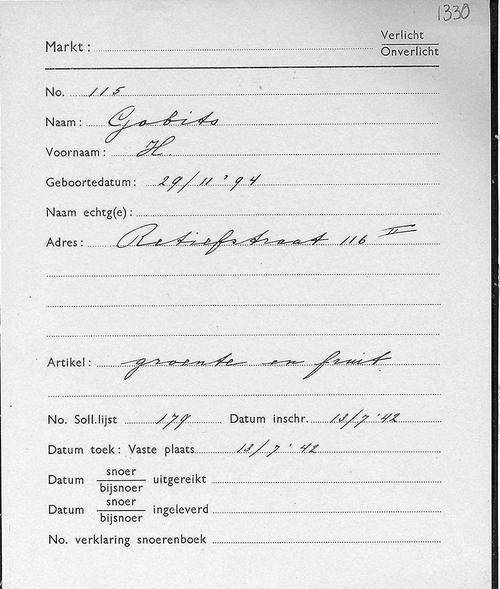 1330
Markt: Verlicht
Onverlicht
No. 115
Naam: Gobits
Voornaam: H.
Geboortedatum: 29/11 '94
Naam echtg(e):
Adres: Retiefstraat 116 II
Artikel: groente en fruit
No. Soll.lijst 179 Datum inschr. 13/7 '42
Datum toek: Vaste plaats 13/7 '42
Datum snoer bijsnoer uitgereikt
Datum snoer bijsnoer ingeleverd
No. verklaring snoerenboek